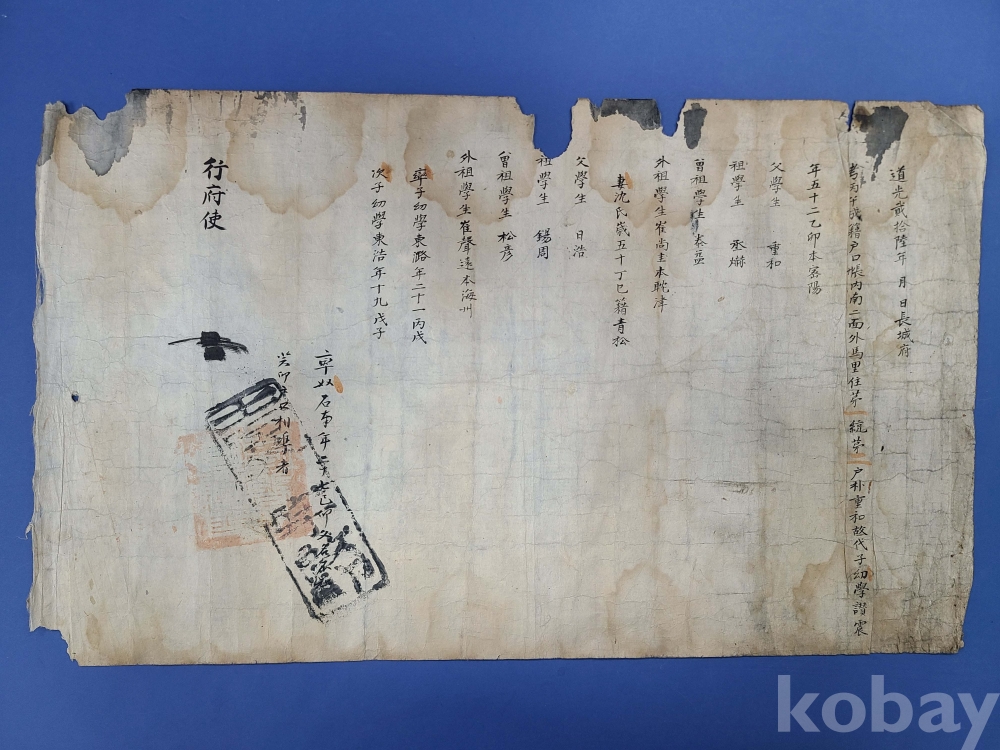 道光貳拾陸年 月 日長城府
考丙午成籍戶口帳內南二面外馬里住第一統第一戶朴重和故代子幼學譜震
年五十二乙卯本密陽
父學生 重和
祖學生 丞
曾祖學生 泰益
外祖學生崔尚圭本耽津
妻沈氏歲五十丁巳籍青松
父學生 日浩
祖學生 錫周
曾祖學生 松彥
外祖學生崔聲遠本海州
率子幼學東潞年二十一丙戌
次子幼學東浩年十九戊子
率奴石
癸卯戶口相準者
行府使
kobay